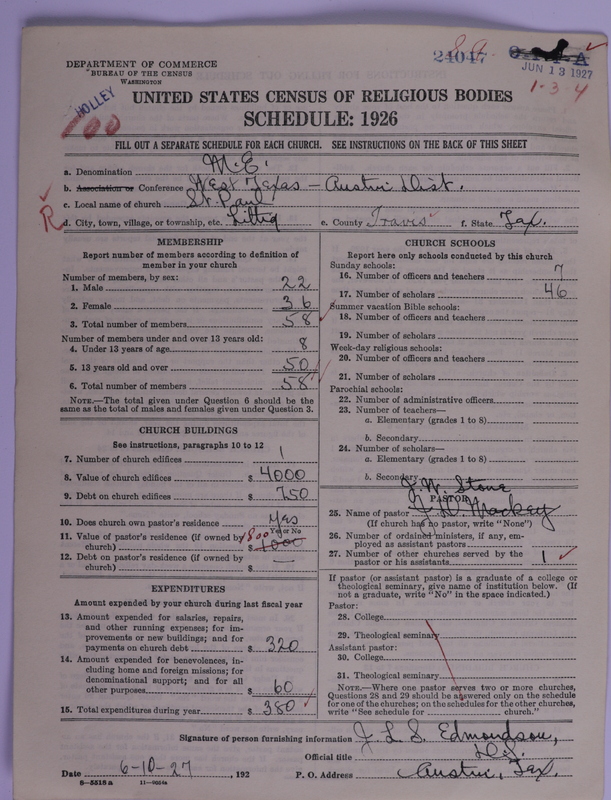 24047
JUN 13 1927
1-3-4
DEPARTMENT OF COMMERCE
BUREAU OF THE CENSUS
WASHINGTON
HOLLEY
UNITED STATES CENSUS OF RELIGIOUS BODIES
SCHEDULE: 1926
FILL OUT A SEPARATE SCHEDULE FOR EACH CHURCH. SEE INSTRUCTIONS ON THE BACK OF THIS SHEET
a. Denomination M.E.
b. Association or Conference West Texas — Austin Dist.
c. Local name of church St. Paul
R
d. City, town, village, or township, etc. Littig e. County Travis f. State Tex.
MEMBERSHIP
Report number of members according to definition of
member in your church
Number of members, by sex:
1. Male 22
2. Female 36
3. Total number of members 58
Number of members under and over 13 years old:
4. Under 13 years of age 8
5. 13 years old and over 50
6. Total number of members 58
NOTE.—The total given under Question 6 should be the
same as the total of males and females given under Question 3.
CHURCH BUILDINGS
See instructions, paragraphs 10 to 12
7. Number of church edifices 1
8. Value of church edifices $ 4000
9. Debt on church edifices $ 750
10. Does church own pastor's residence Yes
Yes or No
11. Value of pastor's residence (if owned by
church) $ 800 1000
12. Debt on pastor's residence (if owned by
church) $ —
EXPENDITURES
Amount expended by your church during last fiscal year
13. Amount expended for salaries, repairs,
and other running expenses; for im-
provements or new buildings; and for
payments on church debt $ 320
14. Amount expended for benevolences, in-
cluding home and foreign missions; for
denominational support; and for all
other purposes $ 60
15. Total expenditures during year $ 380
CHURCH SCHOOLS
Report here only schools conducted by this church
Sunday schools:
16. Number of officers and teachers 7
17. Number of scholars 46
Summer vacation Bible schools:
18. Number of officers and teachers
19. Number of scholars
Week-day religious schools:
20. Number of officers and teachers
21. Number of scholars
Parochial schools:
22. Number of administrative officers
23. Number of teachers—
a. Elementary (grades 1 to 8)
b. Secondary
24. Number of scholars—
a. Elementary (grades 1 to 8)
b. Secondary
J. W. Stone
PASTOR
25. Name of pastor J. D. Mackey
(If church has no pastor, write "None")
26. Number of ordained ministers, if any, em-
ployed as assistant pastors
27. Number of other churches served by the
pastor or his assistants 1
If pastor (or assistant pastor) is a graduate of a college or
theological seminary, give name of institution below. (If
not a graduate, write "No" in the space indicated.)
Pastor:
28. College
29. Theological seminary
Assistant pastor:
30. College
31. Theological seminary
NOTE.—Where one pastor serves two or more churches,
Questions 28 and 29 should be answered only on the schedule
for one of the churches; on the schedules for the other churches,
write "See schedule for church."
Signature of person furnishing information J. L. S. Edmondson,
Official title D.S.
Date 6-10-27, 192 P. O. Address Austin, Tex.
8-5515a 11-9054a